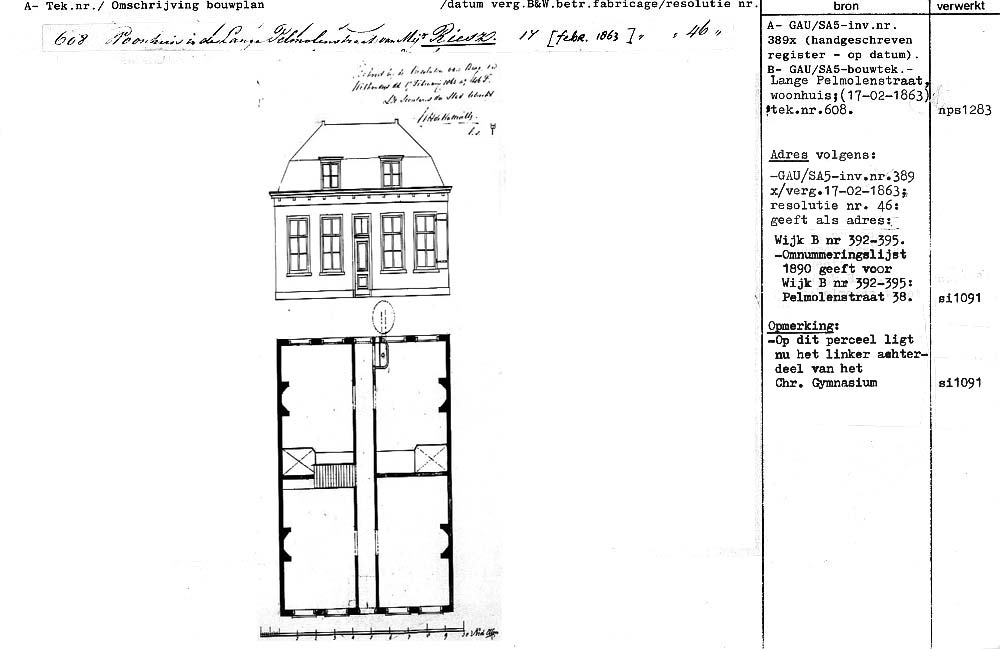 A- Tek.nr./ Omschrijving bouwplan /datum verg.B&W.betr.fabricage/resolutie nr.
608 Woonhuis in de Lange Pelmolenstraat van Mijr Riesz. 17 [febr. 1863] " " 46 "
bron
verwerkt
A- GAU/SA5-inv.nr.
389x (handgeschreven
register - op datum).
B- GAU/SA5-bouwtek.-
Lange Pelmolenstraat,
woonhuis;(17-02-1863)
tek.nr.608. nps1283
Adres volgens:
-GAU/SA5-inv.nr.389
x/verg.17-02-1863;
resolutie nr. 46:
geeft als adres:
Wijk B nr 392-395.
-Omnummeringslijst
1890 geeft voor
Wijk B nr 392-395:
Pelmolenstraat 38. si1091
Opmerking:
-Op dit perceel ligt
nu het linker achter-
deel van het
Chr. Gymnasium si1091